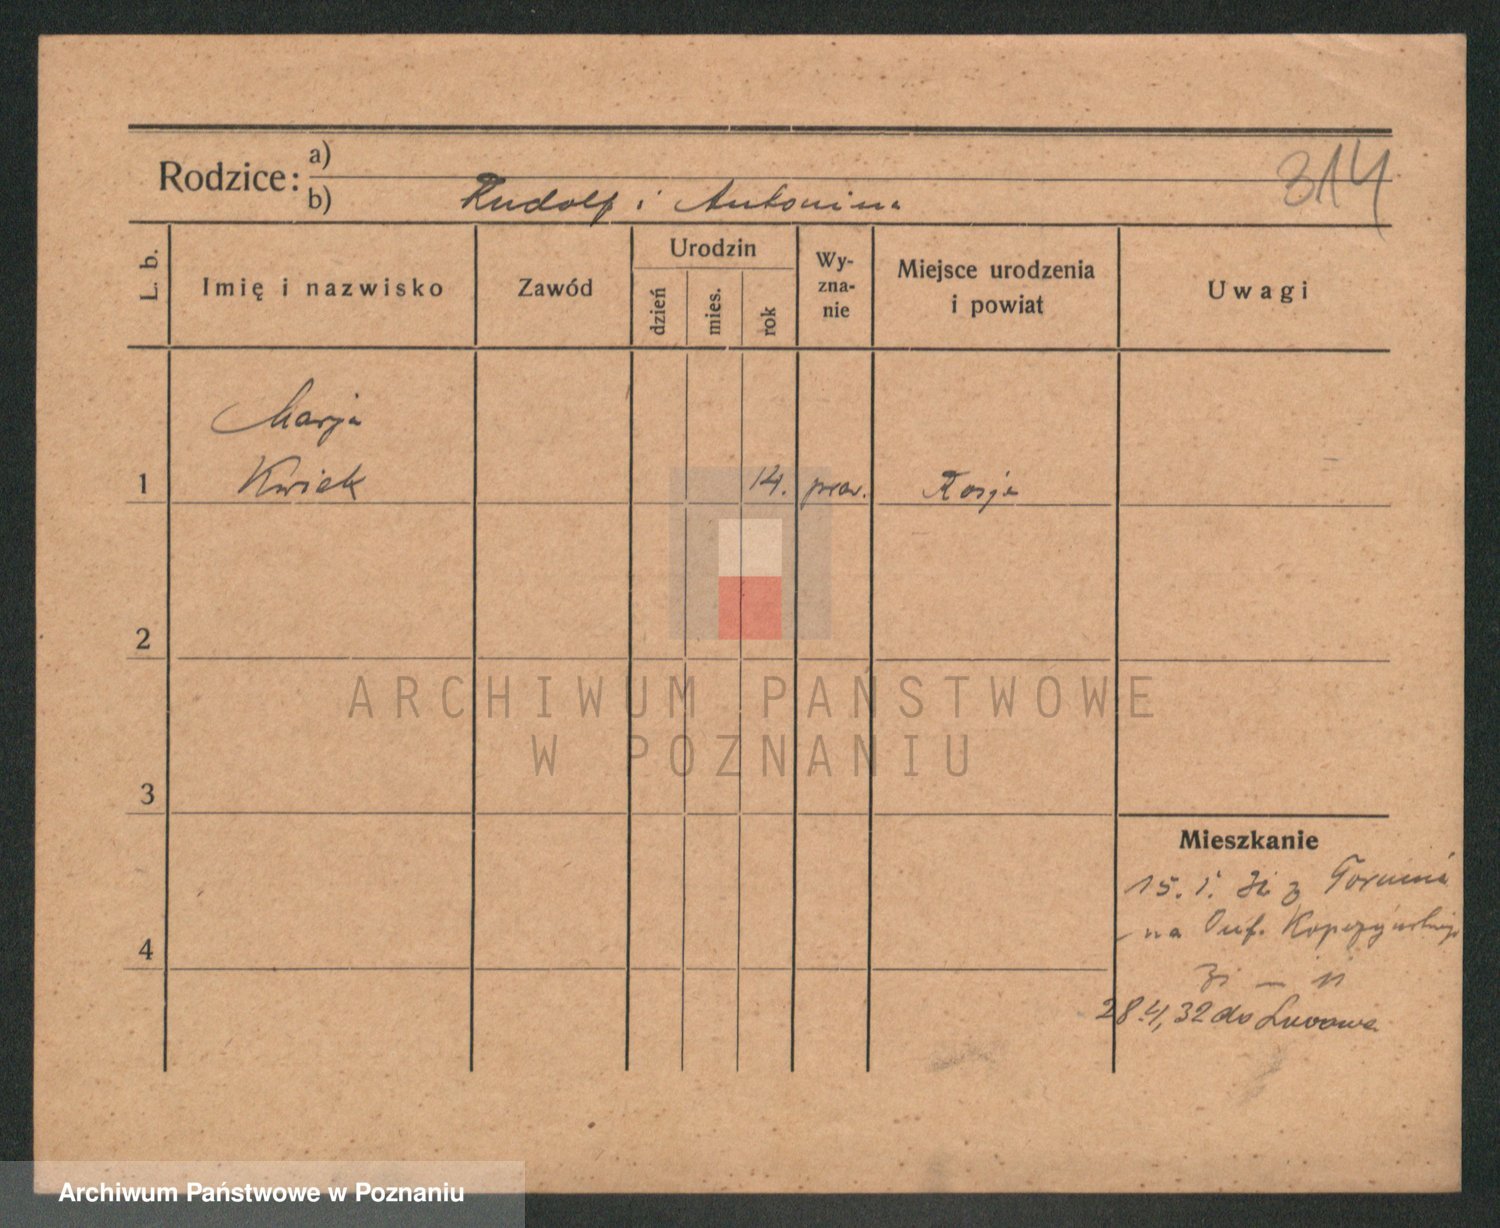 314
Rodzice: a)
b) Rudolf i Antonina
L. b.
Imię i nazwisko
Zawód
Urodzin
dzień
mies.
rok
Wy-
zna-
nie
Miejsce urodzenia
i powiat
Uwagi
Marja
1 Kwiek 14. praw. Rosja
2
3
4
Mieszkanie
15. I. 31 z Torunia
na Kopczyńskiego
28.4,32 do Lwowa
ARCHIWUM PAŃSTWOWE
W POZNANIU
Archiwum Państwowe w Poznaniu